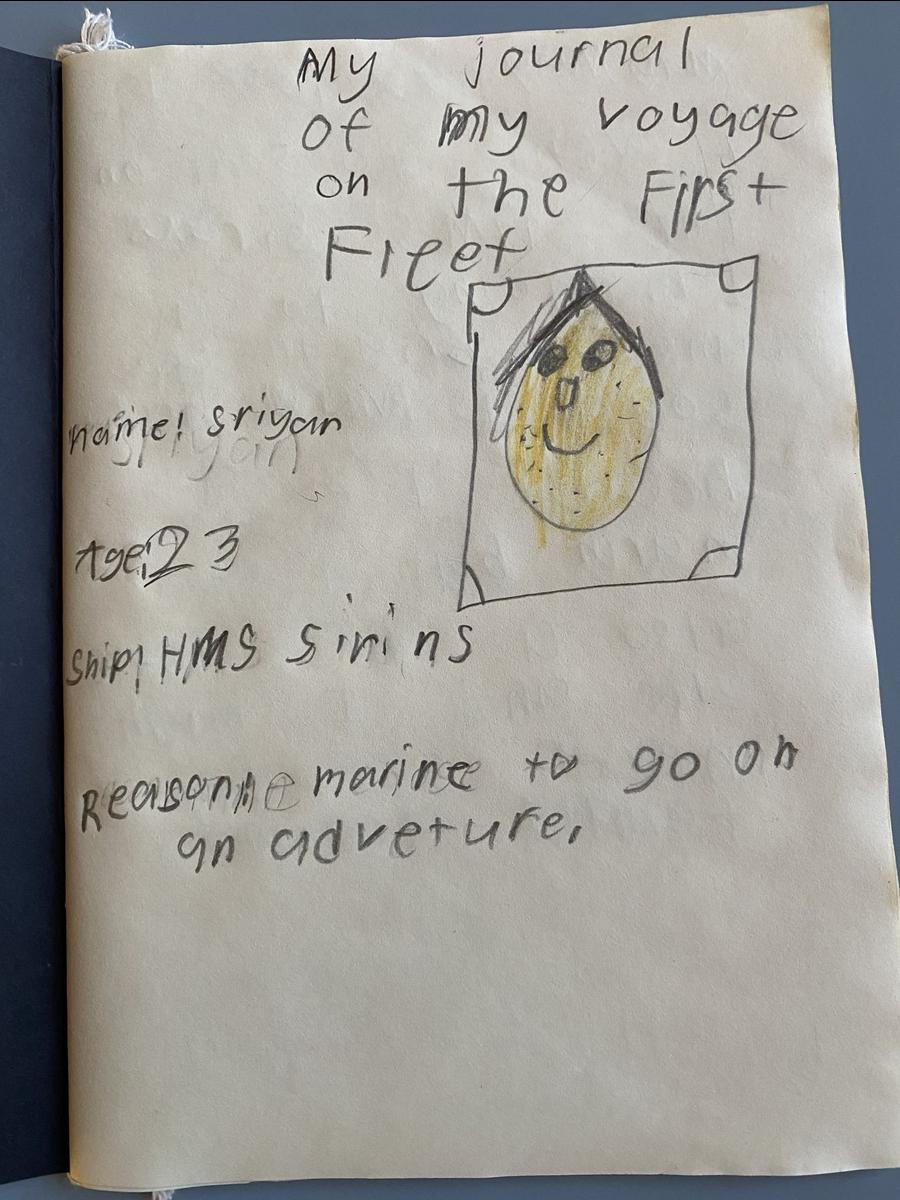 My journal
of my voyage
on the First
Fleet
name: sriyan
Age: 23
Ship: HMS Sirins
Reason: marine to go on
an adveture.